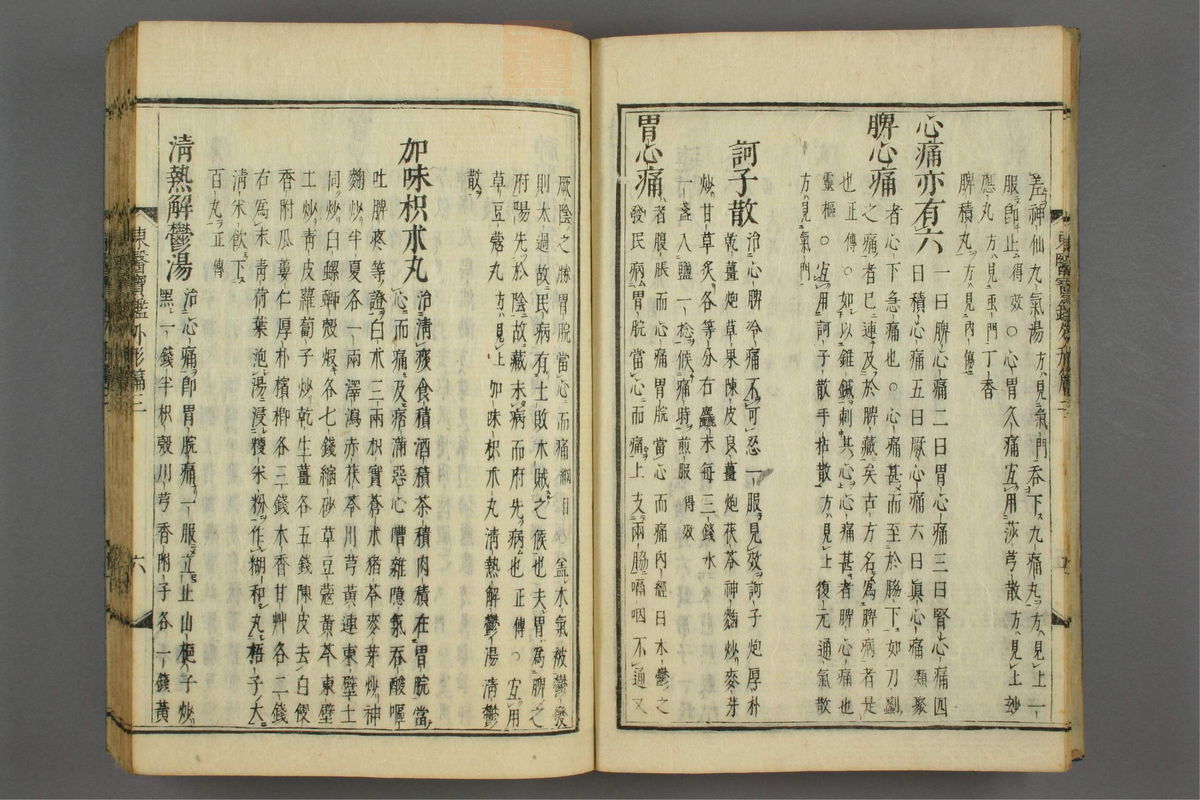 差神仙九氣湯方見氣門吞下九痛丸方見上一
服卽止得效○心胃久痛宜用莎芎散方見上妙
應丸方見虫門丁香
脾積丸方見內傷
心痛亦有六一曰脾心痛二曰胃心痛三曰腎心痛四
曰積心痛五曰厥心痛六曰眞心痛類聚
脾心痛者心下急痛也○心痛甚而至於脇下如刀劙
之痛者已連及於脾藏矣古方名爲脾病者是
也正傳○如以錐鍼刺其心心痛甚者脾心痛也
靈樞○宜用訶子散手拈散方見上復元通氣散
方見氣門
訶子散治心脾冷痛不可忍一服見效訶子炮厚朴
乾薑炮草果陳皮良薑炮茯苓神麴炒麥芽
炒甘草炙各等分右麤末每三錢水
一盞入鹽一捻候痛時煎服得效
胃心痛者腹脹而心痛胃脘當心而痛內經曰木鬱之
發民病胃脘當心而痛上支兩脇嗝咽不通又
厥陰之勝胃脘當心而痛細目盖木氣被鬱發
則太過故民病有土敗木賊之候也夫胃爲脾之
府陽先於陰故藏未病而府先病也正傳○宜用
草豆蔲丸方見上加味枳朮丸淸熱解鬱湯淸鬱
散
加味枳朮丸治淸痰食積酒積茶積肉積在胃脘當
心而痛及痞滿惡心嘈雜隱氣吞酸嘔
吐脾疼等證白朮三兩枳實蒼朮猪苓麥芽炒神
麴炒半夏各一兩澤瀉赤茯苓川芎黃連東壁土
同炒白螺螄殼煆各七錢縮砂草豆蔲黃芩東壁
土炒靑皮蘿葍子炒乾生薑各五錢陳皮去白便
香附瓜蔞仁厚朴檳榔各三錢木香甘艸各二錢
右爲末靑荷葉泡湯浸粳米粉作糊和丸梧子大
淸米飮下
百丸正傳
淸熱解鬱湯治心痛卽胃脘痛一服立止山梔子炒
黑一錢半枳殼川芎香附子各一錢黃
東醫寶鑑外形篇三
六